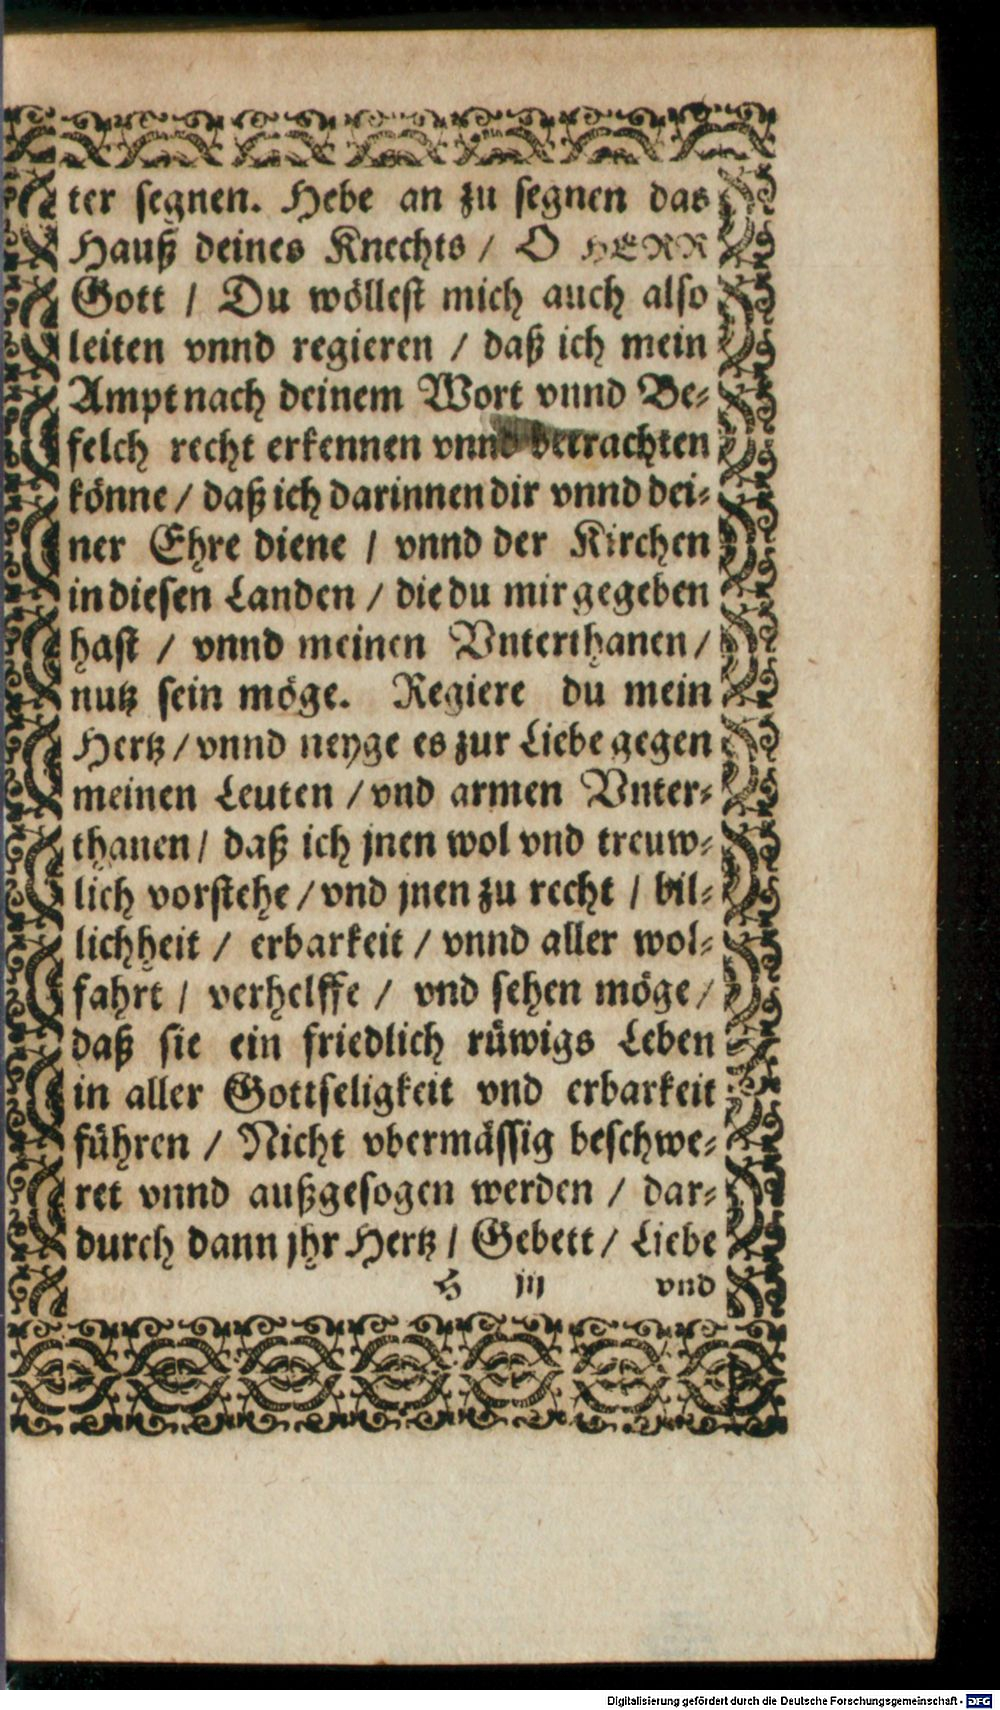 ter segnen. Hebe an zu segnen das
Hauß deines Knechts / O HERR
Gott / Du wöllest mich auch also
leiten vnnd regieren / daß ich mein
Ampt nach deinem Wort vnnd Be-
felch recht erkennen vnnd betrachten
könne / daß ich darinnen dir vnnd dei-
ner Ehre diene / vnnd der Kirchen
in diesen Landen / die du mir gegeben
hast / vnnd meinen Vnterthanen /
nutz sein möge. Regiere du mein
Hertz / vnnd neyge es zur Liebe gegen
meinen Leuten / vnd armen Vnter-
thanen / daß ich jnen wol vnd treuw-
lich vorstehe / vnd jnen zu recht / bil-
lichheit / erbarkeit / vnnd aller wol-
fahrt / verhelffe / vnd sehen möge /
daß sie ein friedlich rüwigs Leben
in aller Gottseligkeit vnd erbarkeit
führen / Nicht vbermässig beschwe-
ret vnnd außgesogen werden / dar-
durch dann jhr Hertz / Gebett / Liebe
H iij vnd
Digitalisierung gefördert durch die Deutsche Forschungsgemeinschaft - DFG